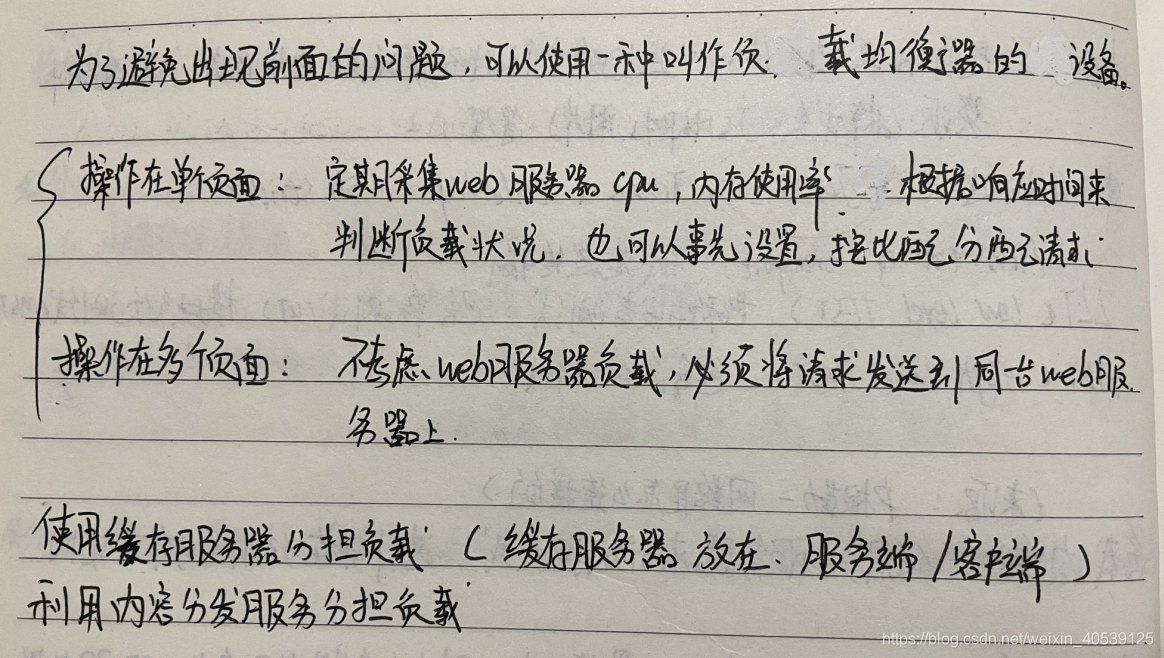 为了避免出现前面的问题,可以使用一种叫作负. 载均衡器的 设备。
操作在单个页面: 定期采集web服务器cpu,内存使用率 ... 根据响应时间来
判断负载状况. 也可以事先设置,按比配分配请求.
操作在多个页面: 不考虑web服务器负载,必须将请求发送到同台web服.
务器上.
使用缓存服务器分担负载 (缓存服务器放在.服务端/客户端)
利用内容分发服务分担负载
https://blog.csdn.net/weixin_40539125